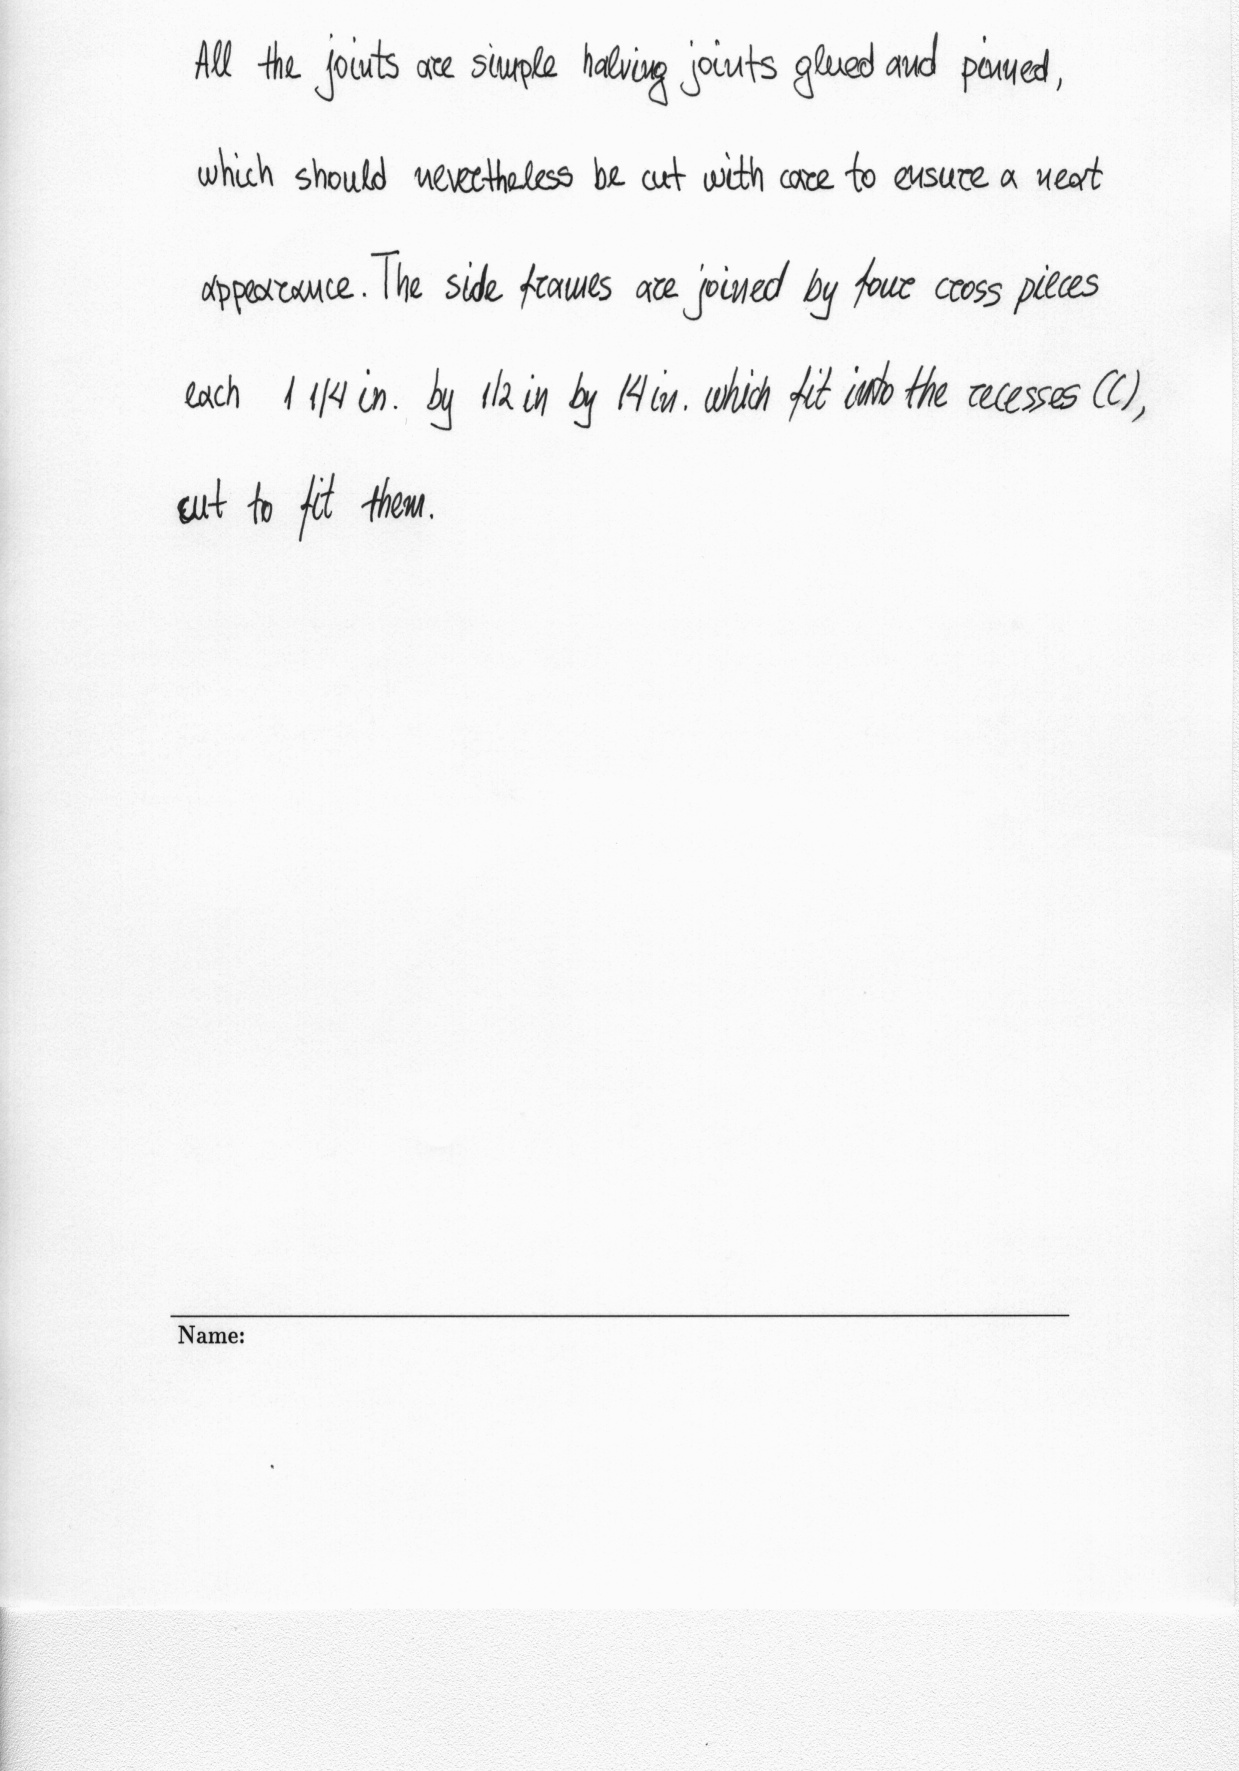 All the joints are simple halving joints glued and pinned,
which should nevertheless be cut with care to ensure a neat
appearance. The side frames are joined by four cross pieces
each 1 1/4 in. by 1/2 in by 14 in. which fit into the recesses (C),
cut to fit them.
Name: